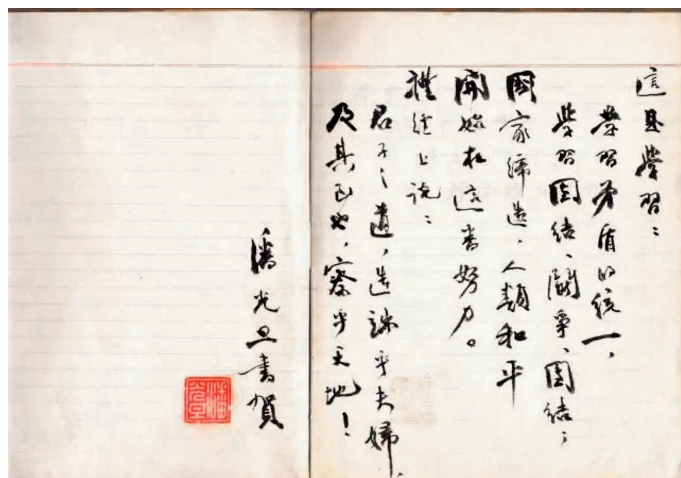 這是學習：
學習矛盾的統一，
學習團結、鬪爭、團結；
國家締造、人類和平
開始在這番努力。
禮經上說：
君子之道，造端乎夫婦，
及其至也，察乎天地！
潘光旦書賀
潘光旦